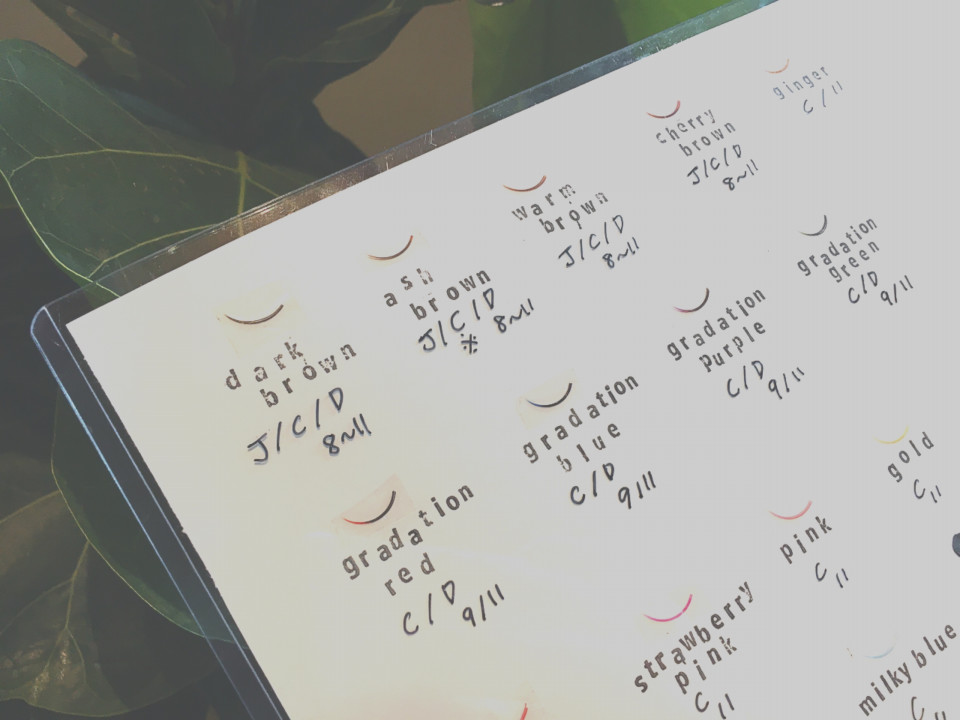 dark
brown
J/C/D
8~11
ash
brown
J/C/D
※ 8~11
warm
brown
J/C/D
8~11
cherry
brown
J/C/D
8~11
ginger
C/11
gradation
red
C/D
9/11
gradation
blue
C/D
9/11
gradation
purple
C/D
9/11
gradation
green
C/D
9/11
strawberry
pink
C
11
pink
C
11
gold
C
11
milky blue
C